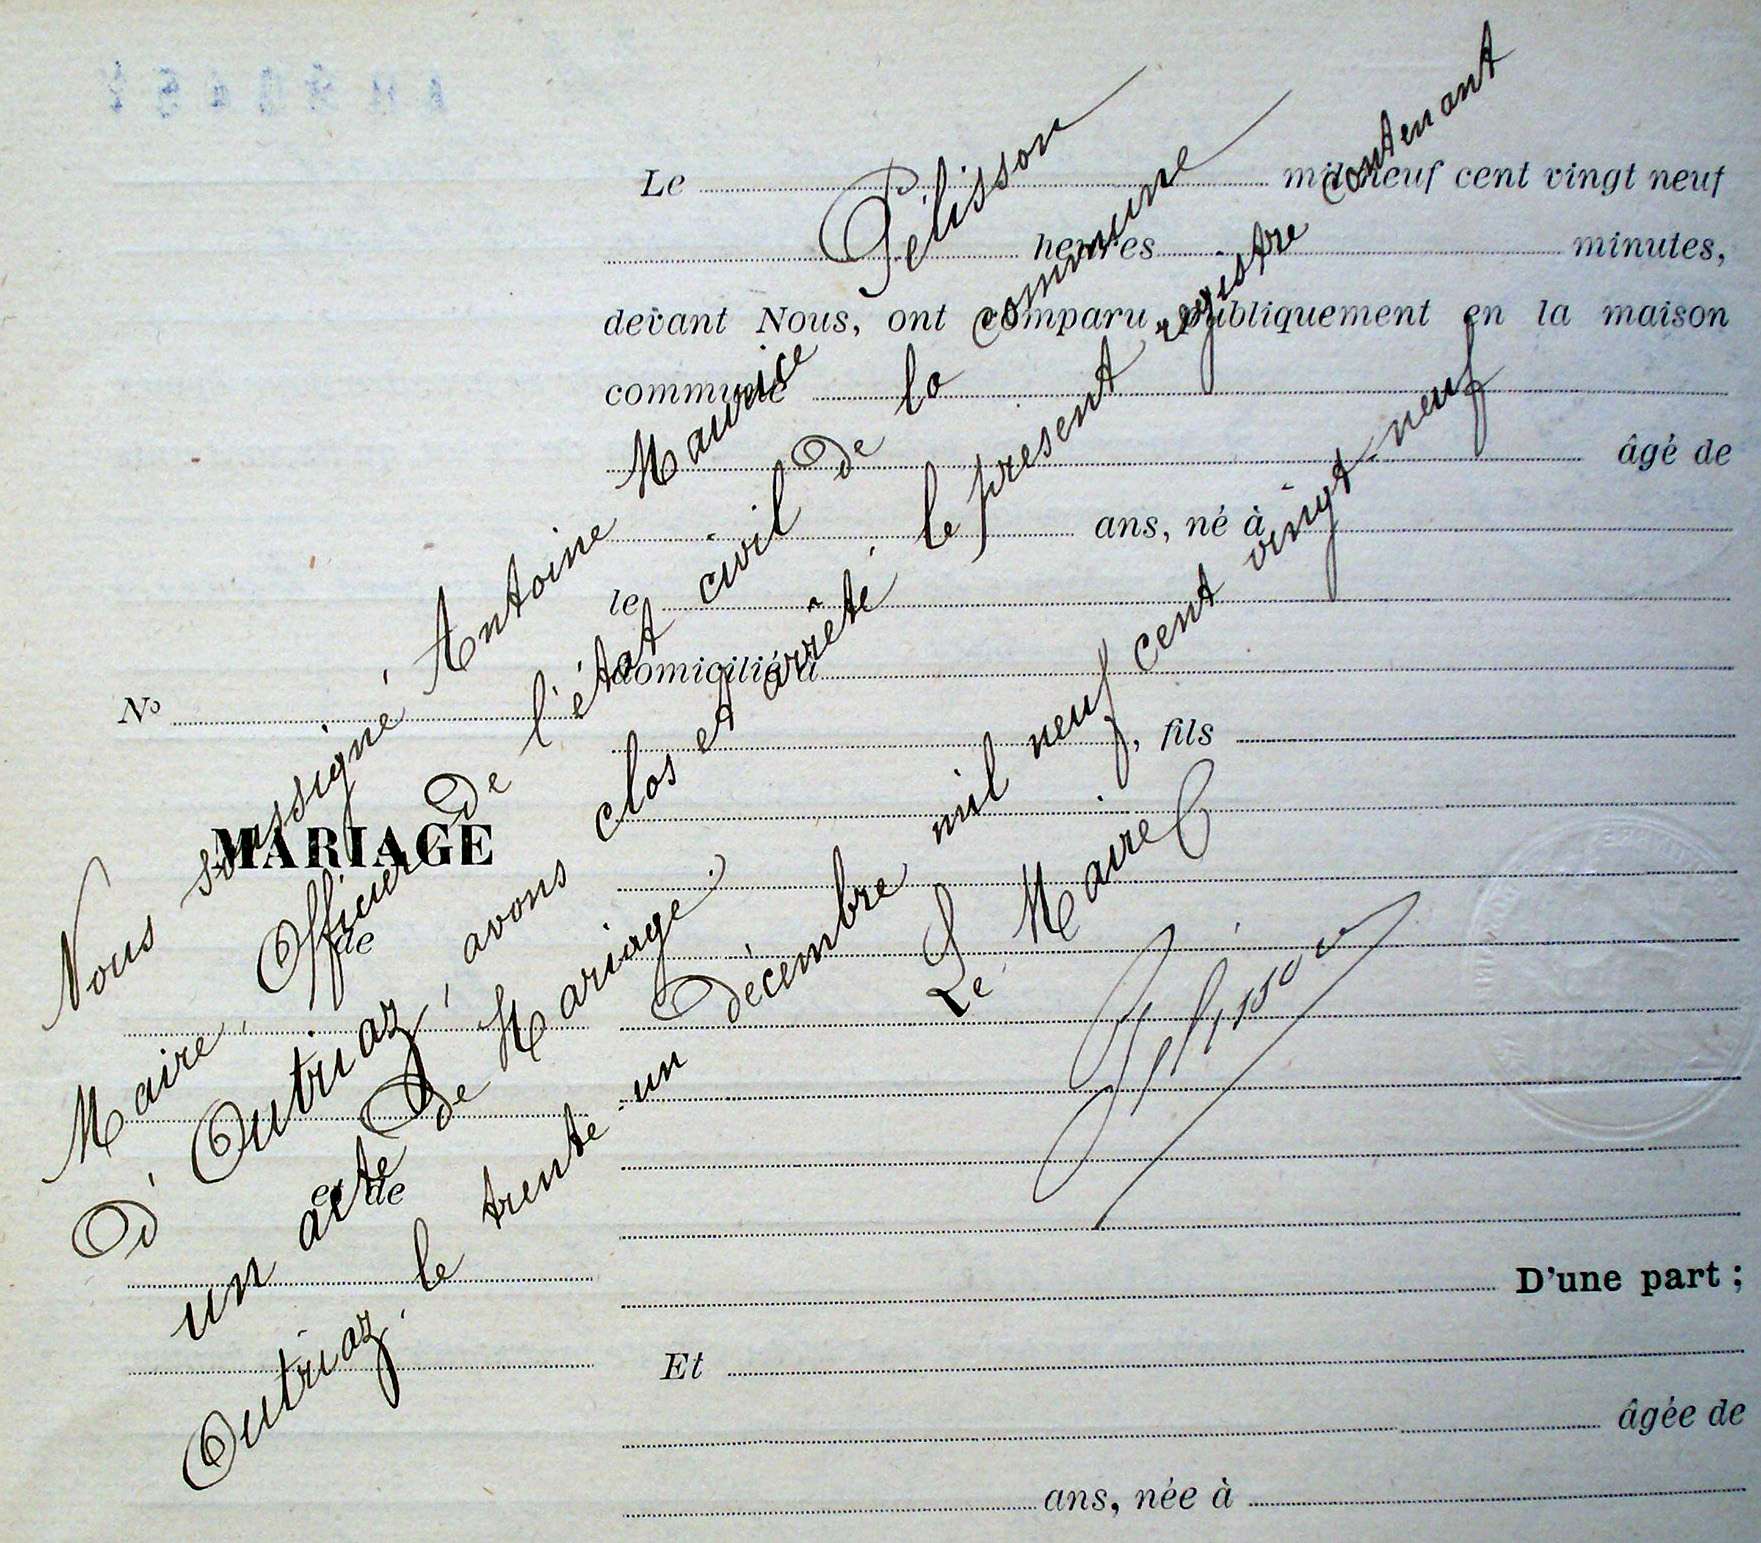 Le mil neuf cent vingt neuf
heures minutes,
devant Nous, ont comparu publiquement en la maison
commune
âgé de
ans, né à
le
domicilié à
, fils
D'une part ;
Et
âgée de
ans, née à
No
MARIAGE
de
et de
Nous soussigné, Antoine Maurice Pélisson
Maire, Officier de l'état civil de la commune
d'Outriaz, avons clos et arrêté le présent registre contenant
un acte de Mariage.
Outriaz, le trente-un décembre mil neuf cent vingt-neuf
Le Maire
Pélisson